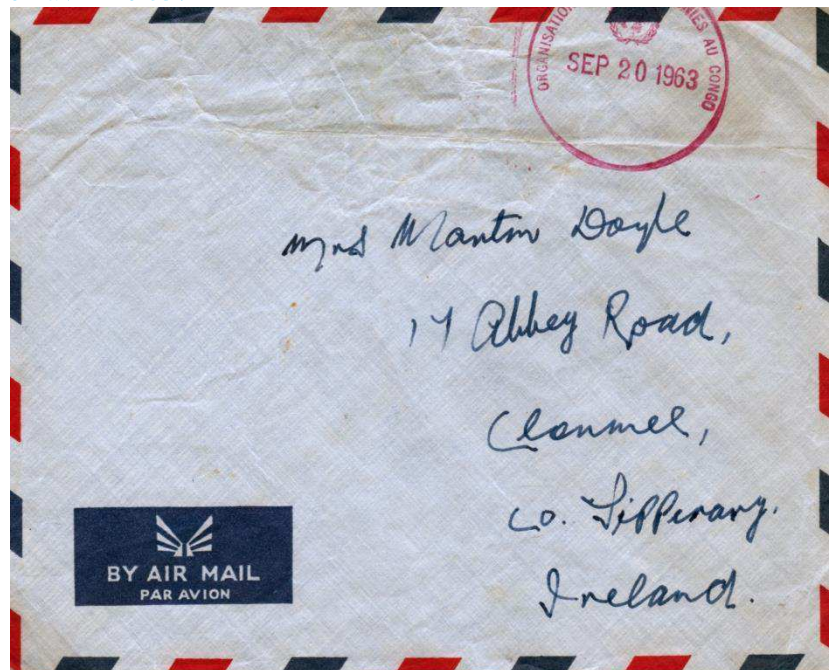 ORGANISATION NIES AU CONGO
SEP 20 1963
Mrs Martin Doyle
17 Abbey Road,
Clonmel,
Co. Tipperary.
Ireland.
BY AIR MAIL
PAR AVION